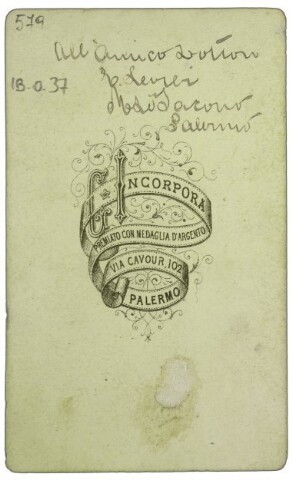 579
All'Amico Dottor
18.a.37
Palermo
G. INCORPORA
PREMIATO CON MEDAGLIA D'ARGENTO
VIA CAVOUR 102
PALERMO